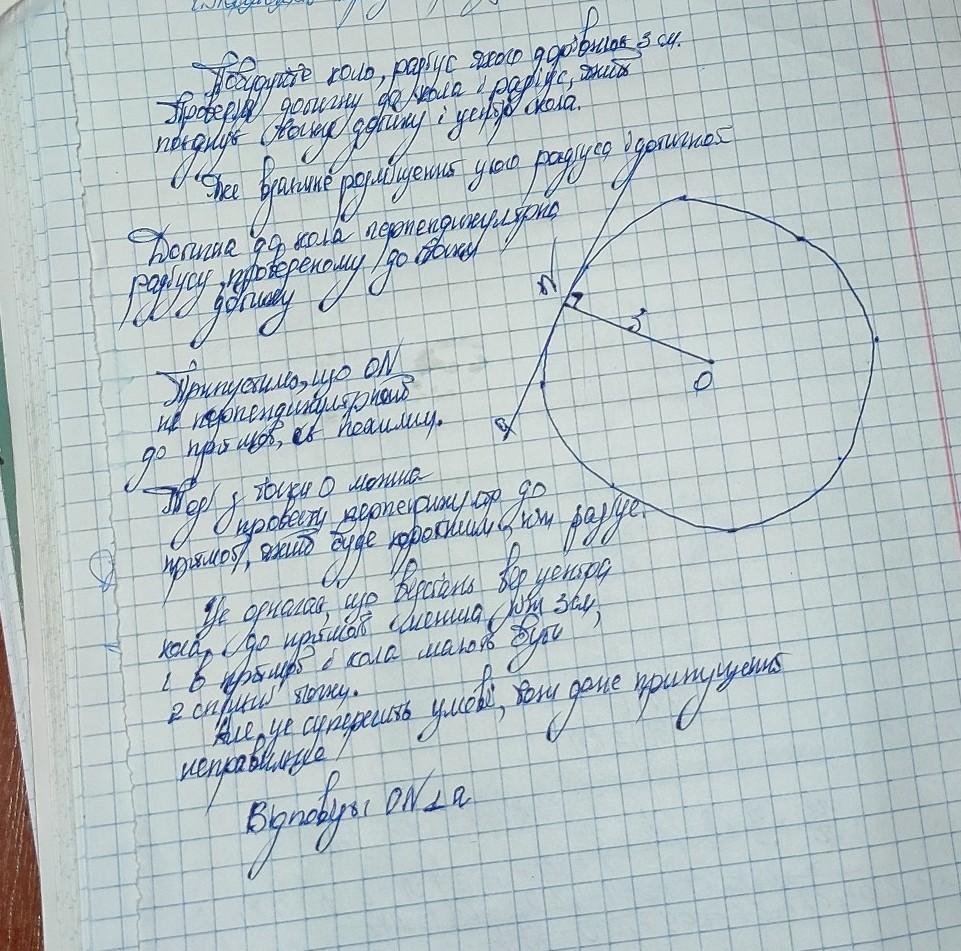 Побудуйте коло, радіус якого дорівнює 3 см.
Проведіть дотичну до кола і радіус, який
поєднує точку дотику і центр кола.
Яке взаємне розміщення цього радіуса і дотичної
Дотична до кола перпендикулярна
радіусу, проведеному до точки
дотику
N
3
O
a
Припустимо, що ON
не перпендикулярний
до прямої, a похилим.
Тоді з точки O можна
провести перпендикуляр до
прямої, який буде коротшим ніж радіус.
Це означає, що відстань від центра
кола до прямої менша, ніж 3 см,
і в прямої і кола мають бути
2 спільні точки.
Але, це суперечить умові, тому дане припущення
неправильне
Відповідь: ON ⊥ a